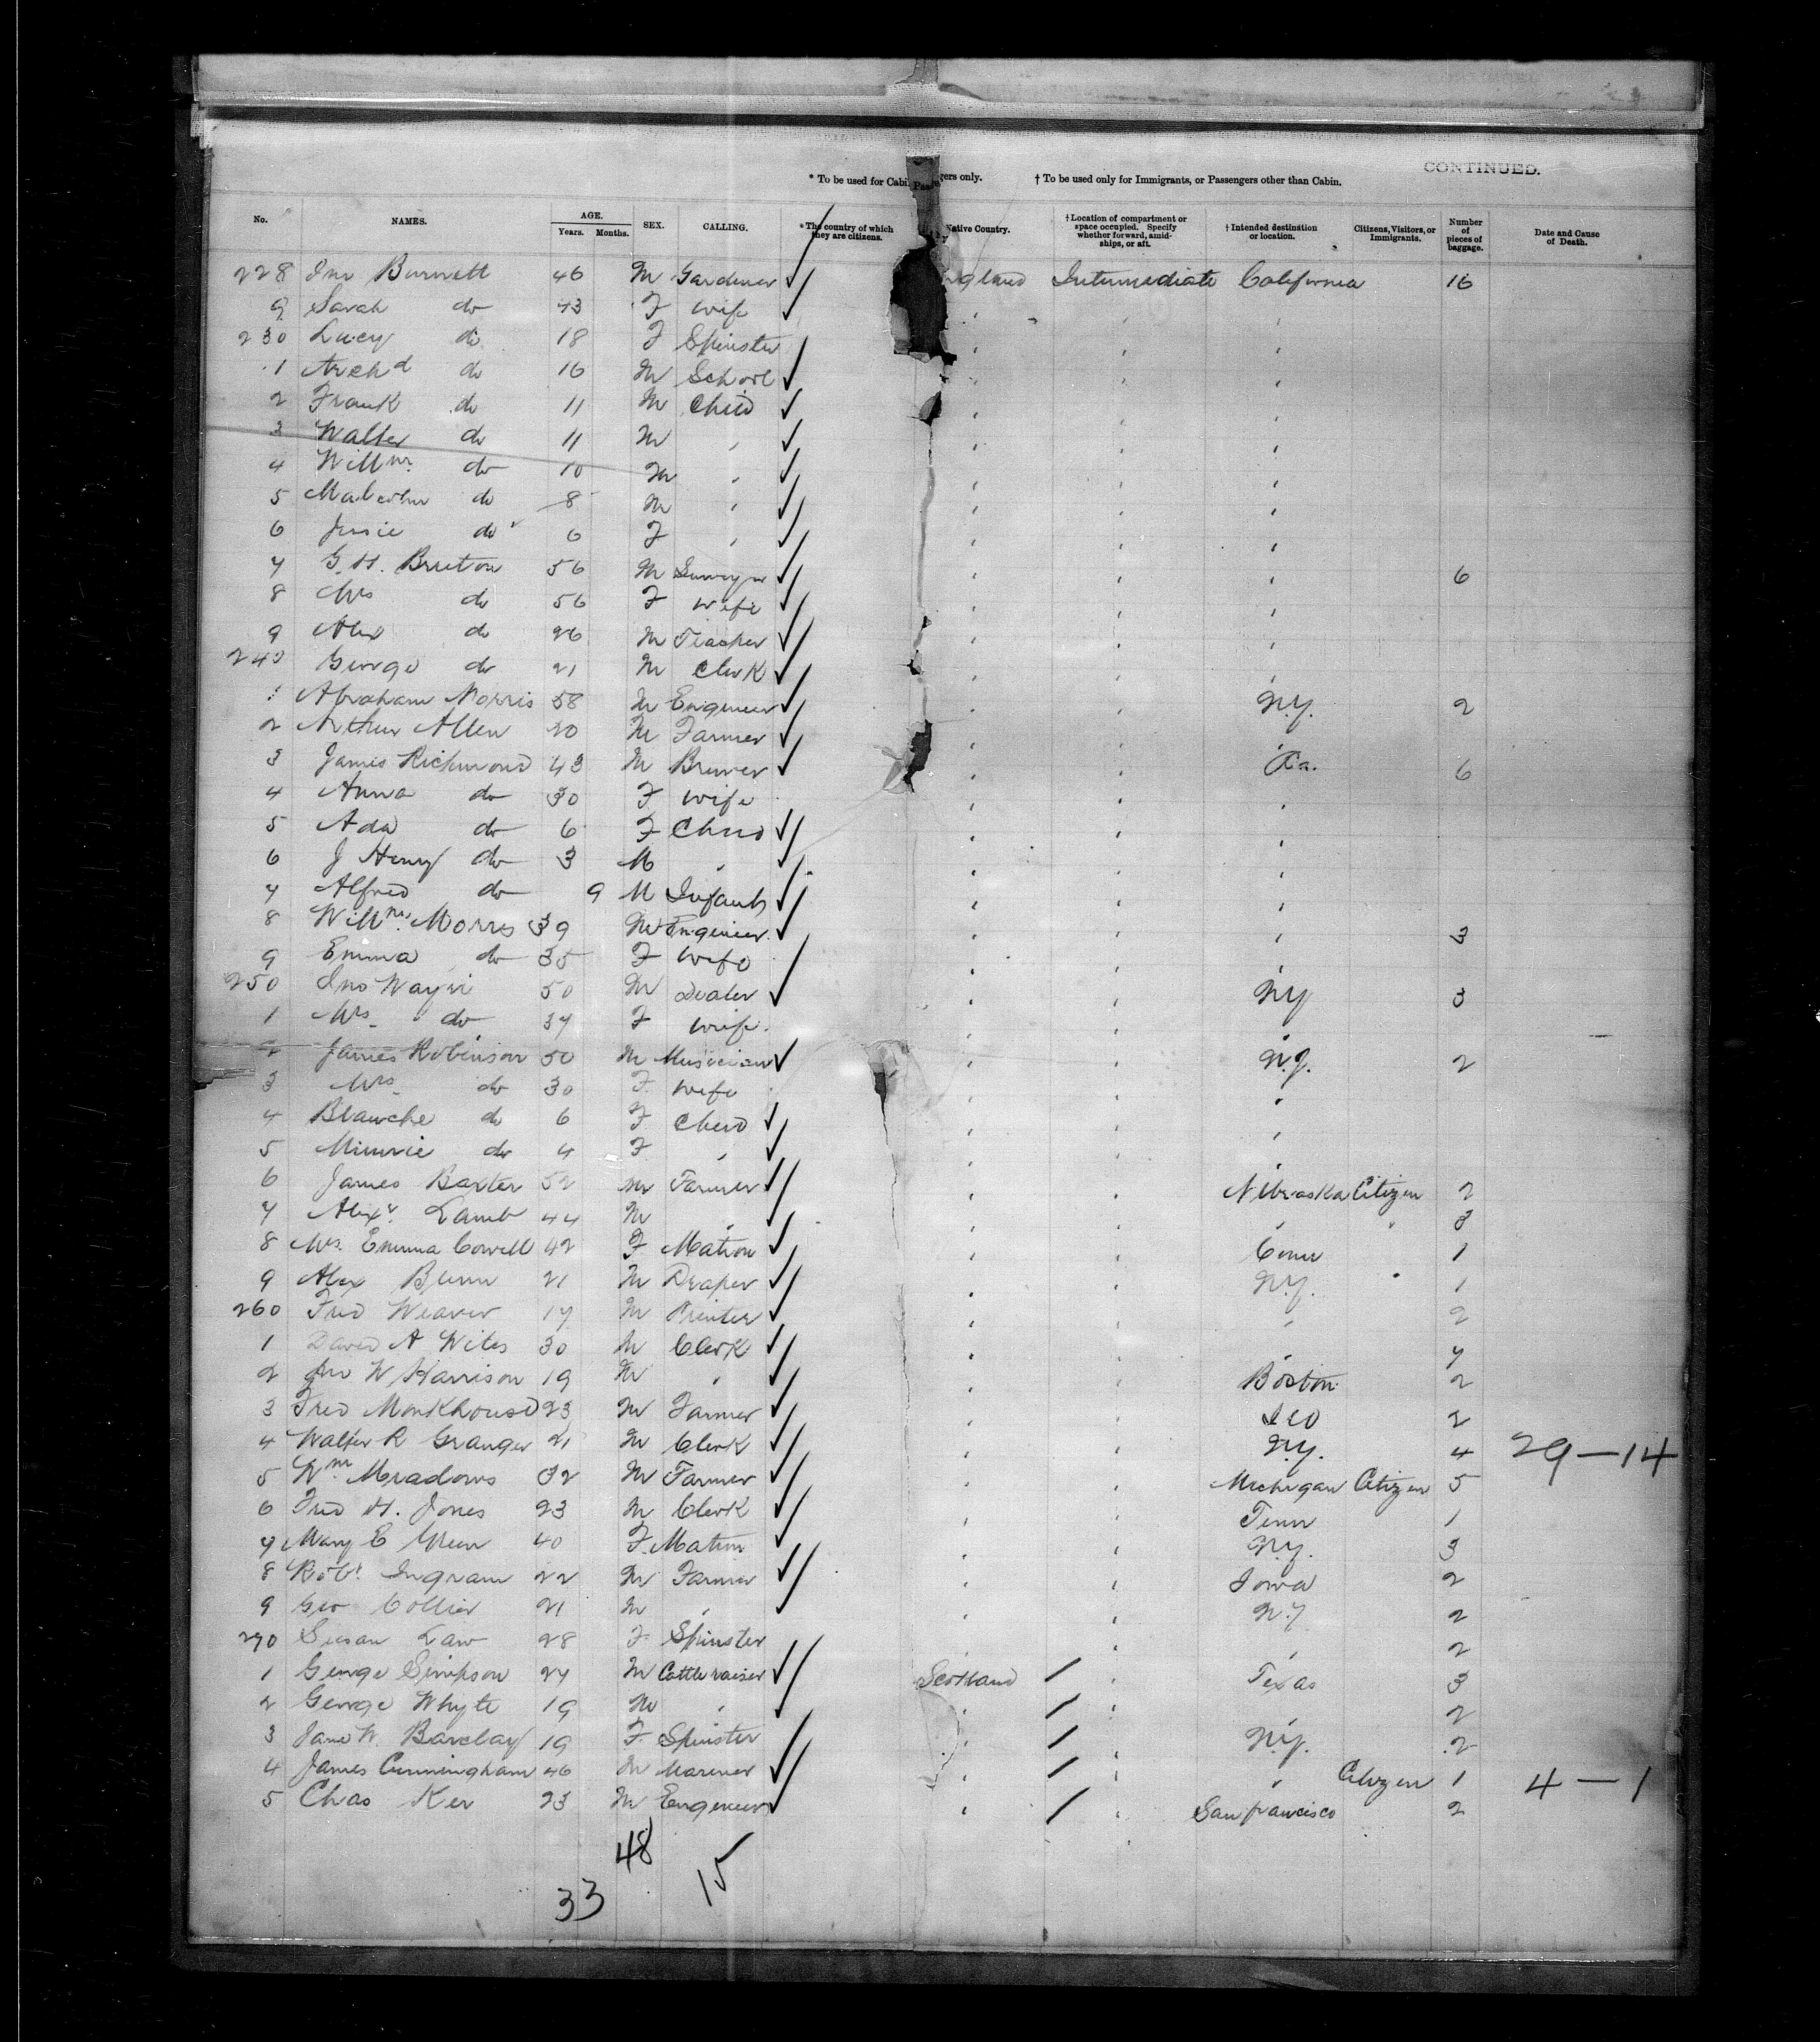 CONTINUED.
* To be used for Cabi Passe gers only. † To be used only for Immigrants, or Passengers other than Cabin.
No. NAMES. AGE. Years. Months. SEX. CALLING. * The country of which they are citizens. Native Country. † Location of compartment or space occupied. Specify whether forward, amidships, or aft. † Intended destination or location. Citizens, Visitors, or Immigrants. Number of pieces of baggage. Date and Cause of Death.
228 Jno Burnett 46 M Gardener ngland Intermediate California 16
9 Sarah do 43 F Wife
230 Lucy do 18 F Spinster
1 Archd do 16 M School
2 Frank do 11 M Child
3 Walter do 11 M "
4 Willm do 10 M "
5 Malcolm do 8 M "
6 Jessie do 6 F "
7 G. H. Bruton 56 M 6
8 Mrs do 56 F Wife
9 Alex do 26 M Teacher
240 George do 21 M Clerk
1 Abraham Morris 58 M Engineer N.Y. 2
2 Arthur Allen 20 M Farmer
3 James Richmond 43 M Brewer Pa. 6
4 Anna do 30 F Wife
5 Ada do 6 F Child
6 J Henry do 3 M "
7 Alfred do 9 M Infant
8 Willm Morris 39 M Engineer 3
9 Emma do 35 F Wife
250 Jno 50 M Dealer NY 3
1 Mrs do 37 F Wife
2 James Robinson 50 M Musician N.J. 2
3 Mrs do 30 F Wife
4 Blanche do 6 F Child
5 Minnie do 4 F "
6 James Baxter 52 M Farmer Nebraska Citizen 2
7 Alexr Lamb 44 M " " " 3
8 Mrs. Emma Cowell 42 F Matron Conn 1
9 Alex Bunn 21 M Draper N.Y. 1
260 Fred Weaver 17 M Printer " 2
1 David A Wites 30 M Clerk " 7
2 Jno W Harrison 19 M " Boston 2
3 Fred Monkhouse 23 M Farmer Ill 2
4 Walter R Granger 21 M Clerk N.Y. 4 29-14
5 Wm Meadows 32 M Farmer Michigan Citizen 5
6 Fred H. Jones 23 M Clerk Tenn 1
7 Mary E Green 40 F Matron N.Y. 3
8 Robt Ingram 22 M Farmer Iowa 2
9 Geo Collier 21 M " N.Y 2
270 Susan Law 28 F Spinster " 2
1 George Simpson 27 M Cattle raiser Scotland Texas 3
2 George Whyte 19 M " " 2
3 Jane W. Barclay 19 F Spinster N.Y. 2
4 James Cunningham 46 M Mariner " Citizen 1 4-1
5 Chas Ker 23 M Engineer San francisco 2
48
33 15